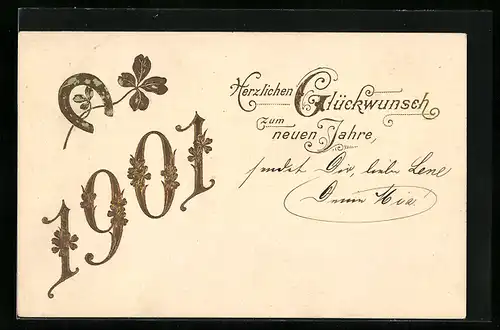 1901
Herzlichen Glückwunsch
zum
neuen Jahre,
sendet Dir, liebe Lene
Deine Mia!